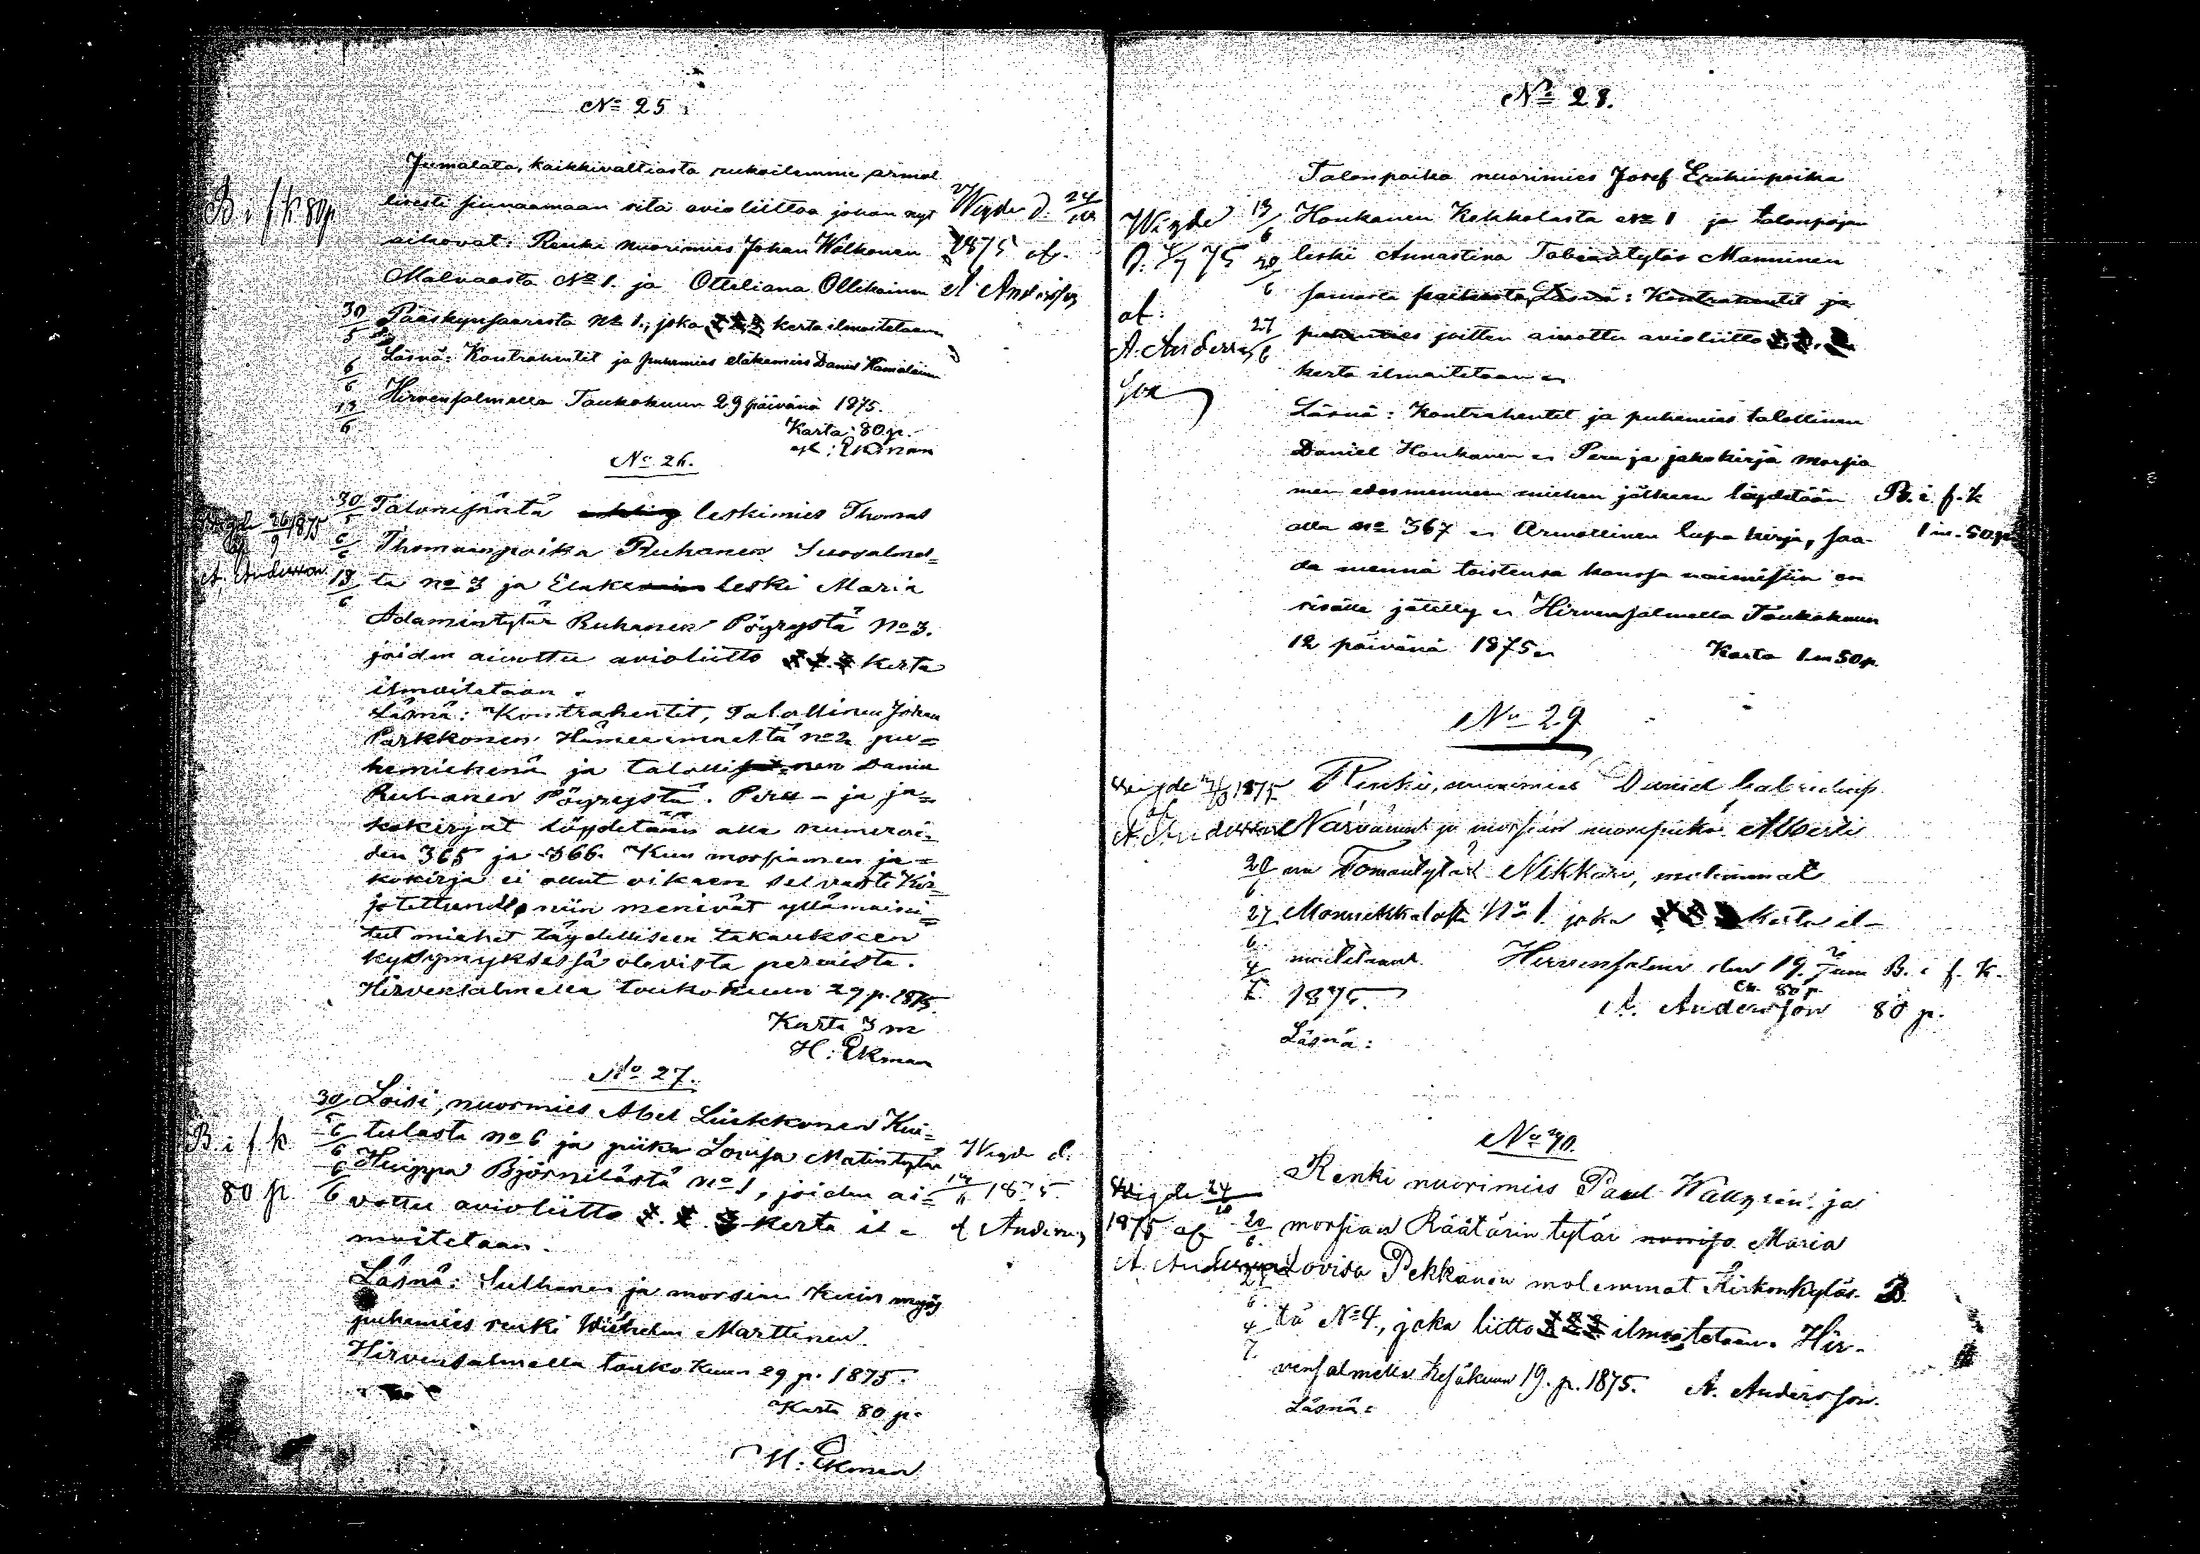 No 25
Jumalata, kaikkivaltiasta rukoilemme armol
lisesti siunaamaan sitä avioliittoa johon nyt
aikovat: Renki nuorimies Johan Walkonen
Malvaasta No 1. ja Otteliana Ollikainen
Pääskynsaaresta No 1., joka 1. 2. 3. kerta ilmoitetaan
Läsnä: Kontrahentit ja puhemies eläkemies Daniel Hämäläinen
Hirvensalmella Toukokuun 29 päivänä 1875.
Karta: 80 p.
Ekman
B. i f. k 80 p
Wigde d. 24/10
1875 af.
A Andersson
30/5
6/6
13/6
No 26.
Talonisäntä leskimies Thomas
Thomaanpoika Ruhanen Suosalmel-
ta No 3 ja Eläke leski Maria
Adamintytär Ruhanen Pöyrystä No 3.
joiden aivottu avioliitto 1. 2. 3 kerta
ilmoitetaan.
Läsnä: Kontrahentit, Talollinen Johan
Parkkonen Hämeenmaalta No 2 pu=
hemiehenä ja talollinen Daniel
Ruhanen Pöyrystä. Peru- ja ja=
kokirjat löydetään alla numeroi=
den 365 ja 366. Kun morsiamen ja=
kokirja ei ollut oikaen selvästi kir=
joitettu niin menivät yllämaini=
tut miehet täydelliseen takaukseen
kysymyksessä olevista peruista.
Hirvensalmella toukokuun 29 p. 1875.
Karta 3 m
H: Ekman
Wigde 26/9 1875
af
A. Andersson
30/5
6/6
13/6
No 27.
Loisi, nuormies Abel Liukkonen Kui=
tulasta No 6 ja piika Lovisa Matintytär
Huippa Björnilästä No 1, joiden ai=
vottu avioliitto 1. 2. 3 kerta il=
moitetaan.
Läsnä: Sulhanen ja morsian kuin myös
puhemies renki Wilhelm Marttinen
Hirvensalmella toukokuun 29 p. 1875.
Karta 80 p.
H: Ekman
B. i f. k
80 p
Wigde d.
1875
af Andersson
No 28.
Talonpoika nuorimies Josef Erikinpoika
Honkanen Kekkolasta No 1 ja talonpojan
leski Annastina Tobiantytär Manninen
samasta Läsnä: Kontrahentit ja
puhemies joitten aivottu avioliitto 1. 2. 3.
kerta ilmoitetaan
Läsnä: Kontrahentit ja puhemies talollinen
Daniel Honkanen Peru ja jakokirja morsia
men edesmenneen miehen jälkeen löydetään
alla No 367 Armollinen lupa kirja, saa-
da mennä toistensa kanssa naimisiin on
sisälle jätetty Hirvensalmella Toukokuun
12 päivänä 1875
Karta 1 m 50 p.
B. i f. k
1 m. 50 p
Wigde
75
af:
A. Anders
son
13/6
20/6
27/6
No 29
Renki, nuorimies Daniel Gabrielinp.
Närvänen ja morsian nuoripiika Alberti
na Tomantytär Nikkari, molemmat
Mannikkalasta No 1. joka 1 2 3 kerta il-
moitetaan. Hirvensalmi den 19. Juni
1875.
A. Andersson
Läsnä:
B. i f. k.
80 p.
Wigde 1875
af
A. Andersson
20/6
27/6
4/7
No 30.
Renki nuorimies Paul Wallgren ja
morsian Räätärin tytär Maria
Lovisa Pekkanen molemmat Kirkonkyläs-
tä No 4., joka liitto 1 2 3 ilmoitetaan. Hir-
vensalmella Kesäkuun 19. p. 1875. A. Andersson.
Läsnä:
B.
Wigde 24/10
1875 af
A. Andersson
20/6
27/6
4/7